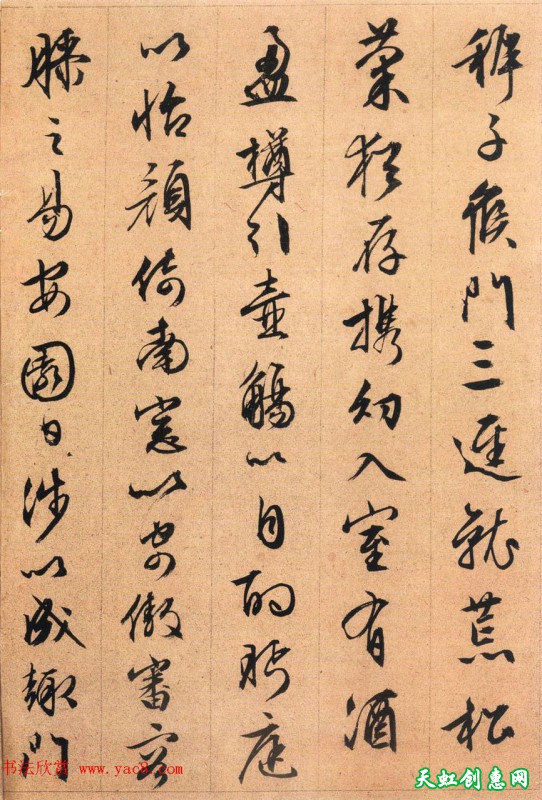 稚子候門三逕就荒松
菊猶存携幼入室有酒
盈樽引壺觴以自酌眄庭
以怡顏倚南窓以寄傲審容
膝之易安園日涉以成趣門
书法欣赏 www.yac8.com
天虹创惠网